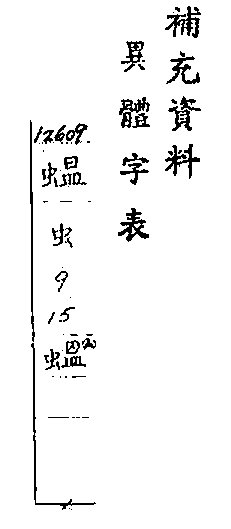 補充資料
異體字表
12609
蝹
虫
9
15